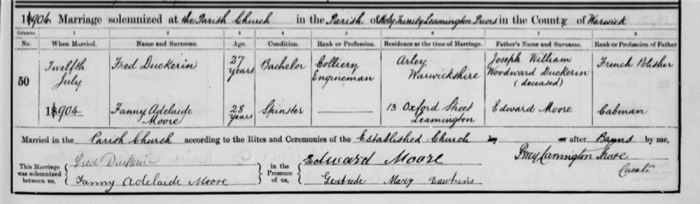 1904. Marriage solemnized at the Parish Church in the Parish of Holy Trinity Leamington Priors in the County of Warwick
Columns 1 2 3 4 5 6 7 8
No. When Married. Name and Surname. Age. Condition. Rank or Profession. Residence at the time of Marriage. Father's Name and Surname. Rank or Profession of Father
50
Twelfth July 1904
Fred Duckerin 27 years Bachelor Colliery Engineman Arley Warwickshire Joseph William Woodward Duckerin (deceased) French Polisher
Fanny Adelaide Moore 28 years Spinster 13 Oxford Street Leamington Edward Moore Cabman
Married in the Parish Church according to the Rites and Ceremonies of the Established Church after Banns by me,
This Marriage was solemnized between us,
Fred Duckerin
Fanny Adelaide Moore
in the Presence of us,
Edward Moore
Gertrude Mary Dawkins
Curate